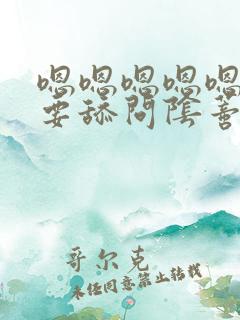 嗯嗯嗯嗯嗯
要舔问阴善
哥尔克
未经同意禁止转载